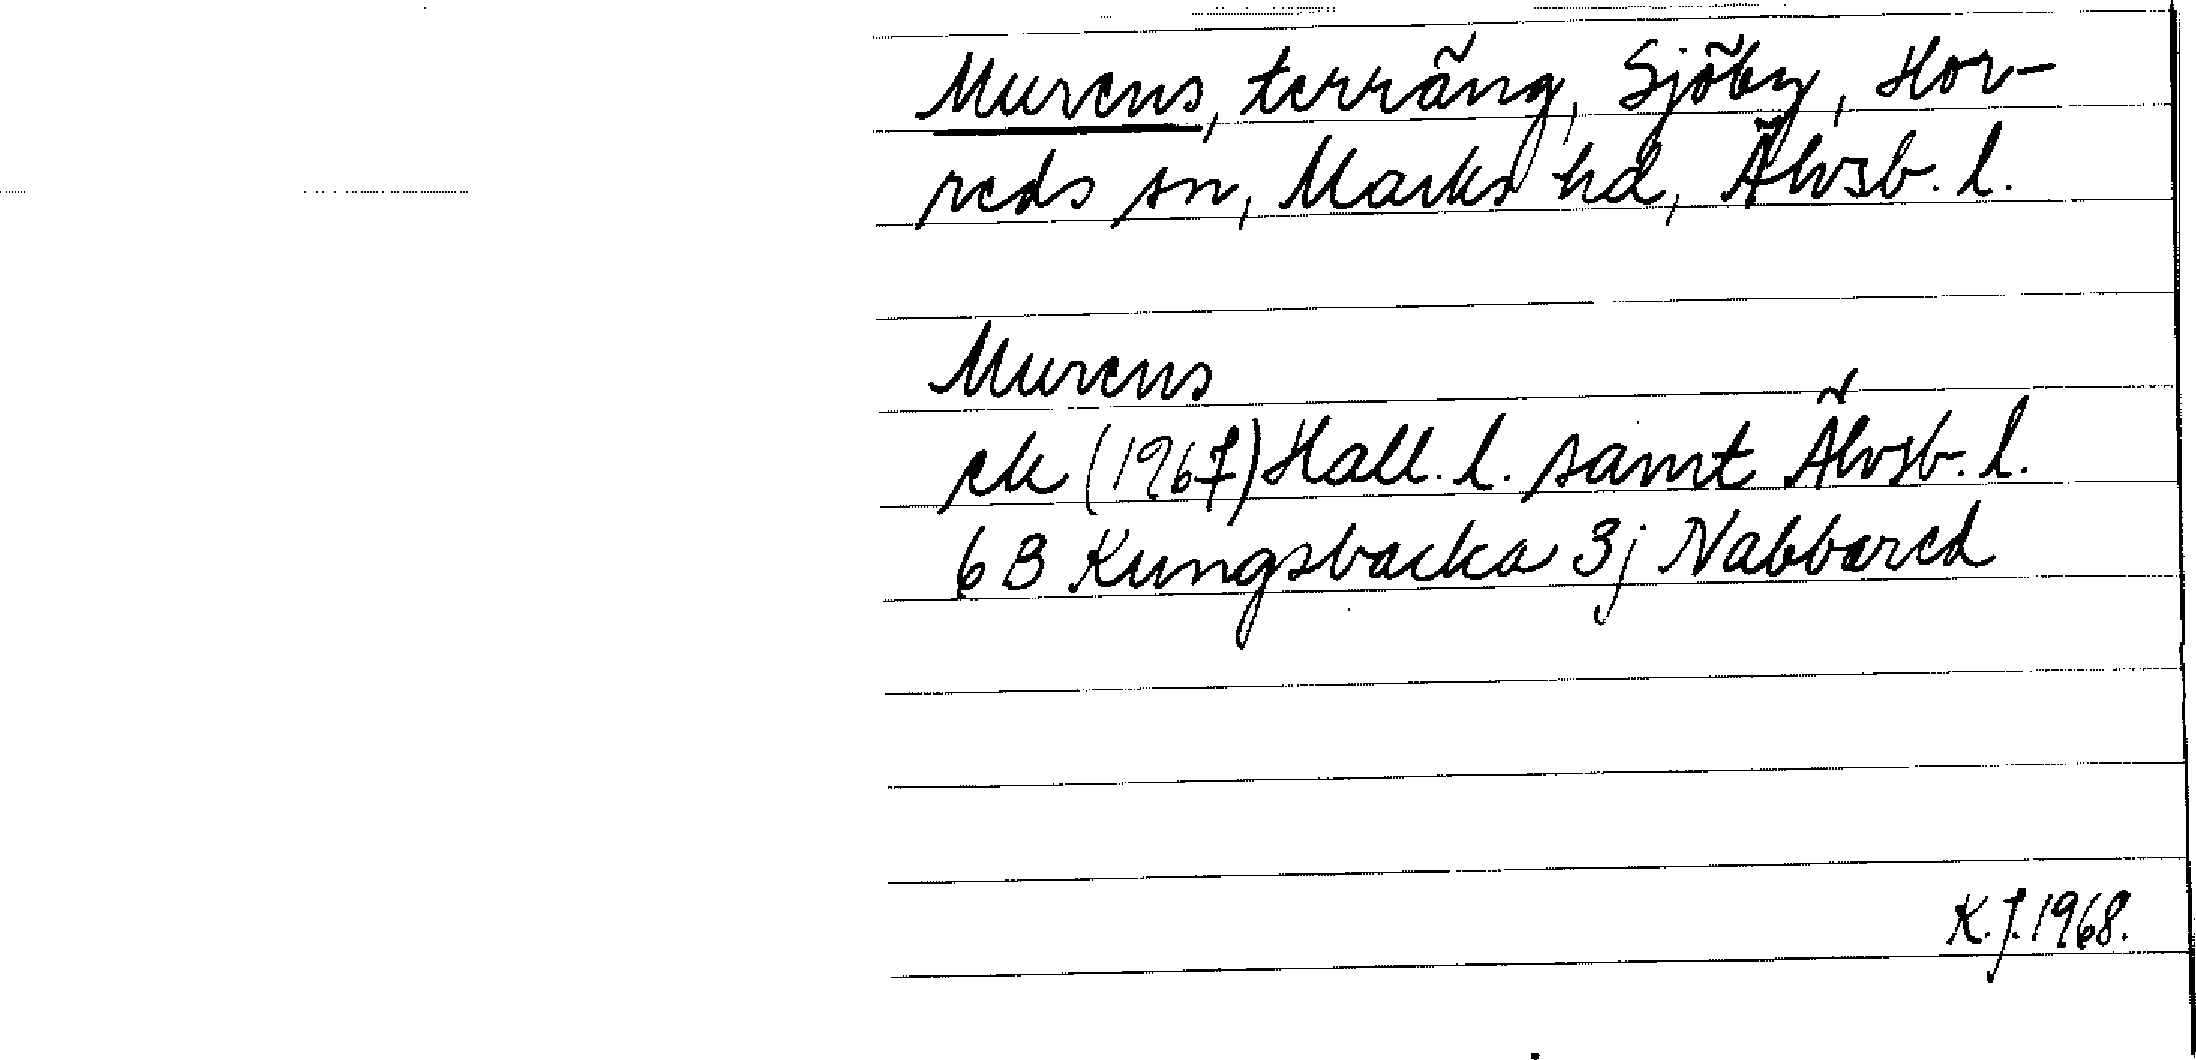 Murens, terräng, Sjöby, Hor-
reds sn, Marks hd, Älvsb. l.
Murens
ek (1967) Hall. l. samt Älvsb. l.
6B Kungsbacka 3j Nabbared
K.J. 1968.